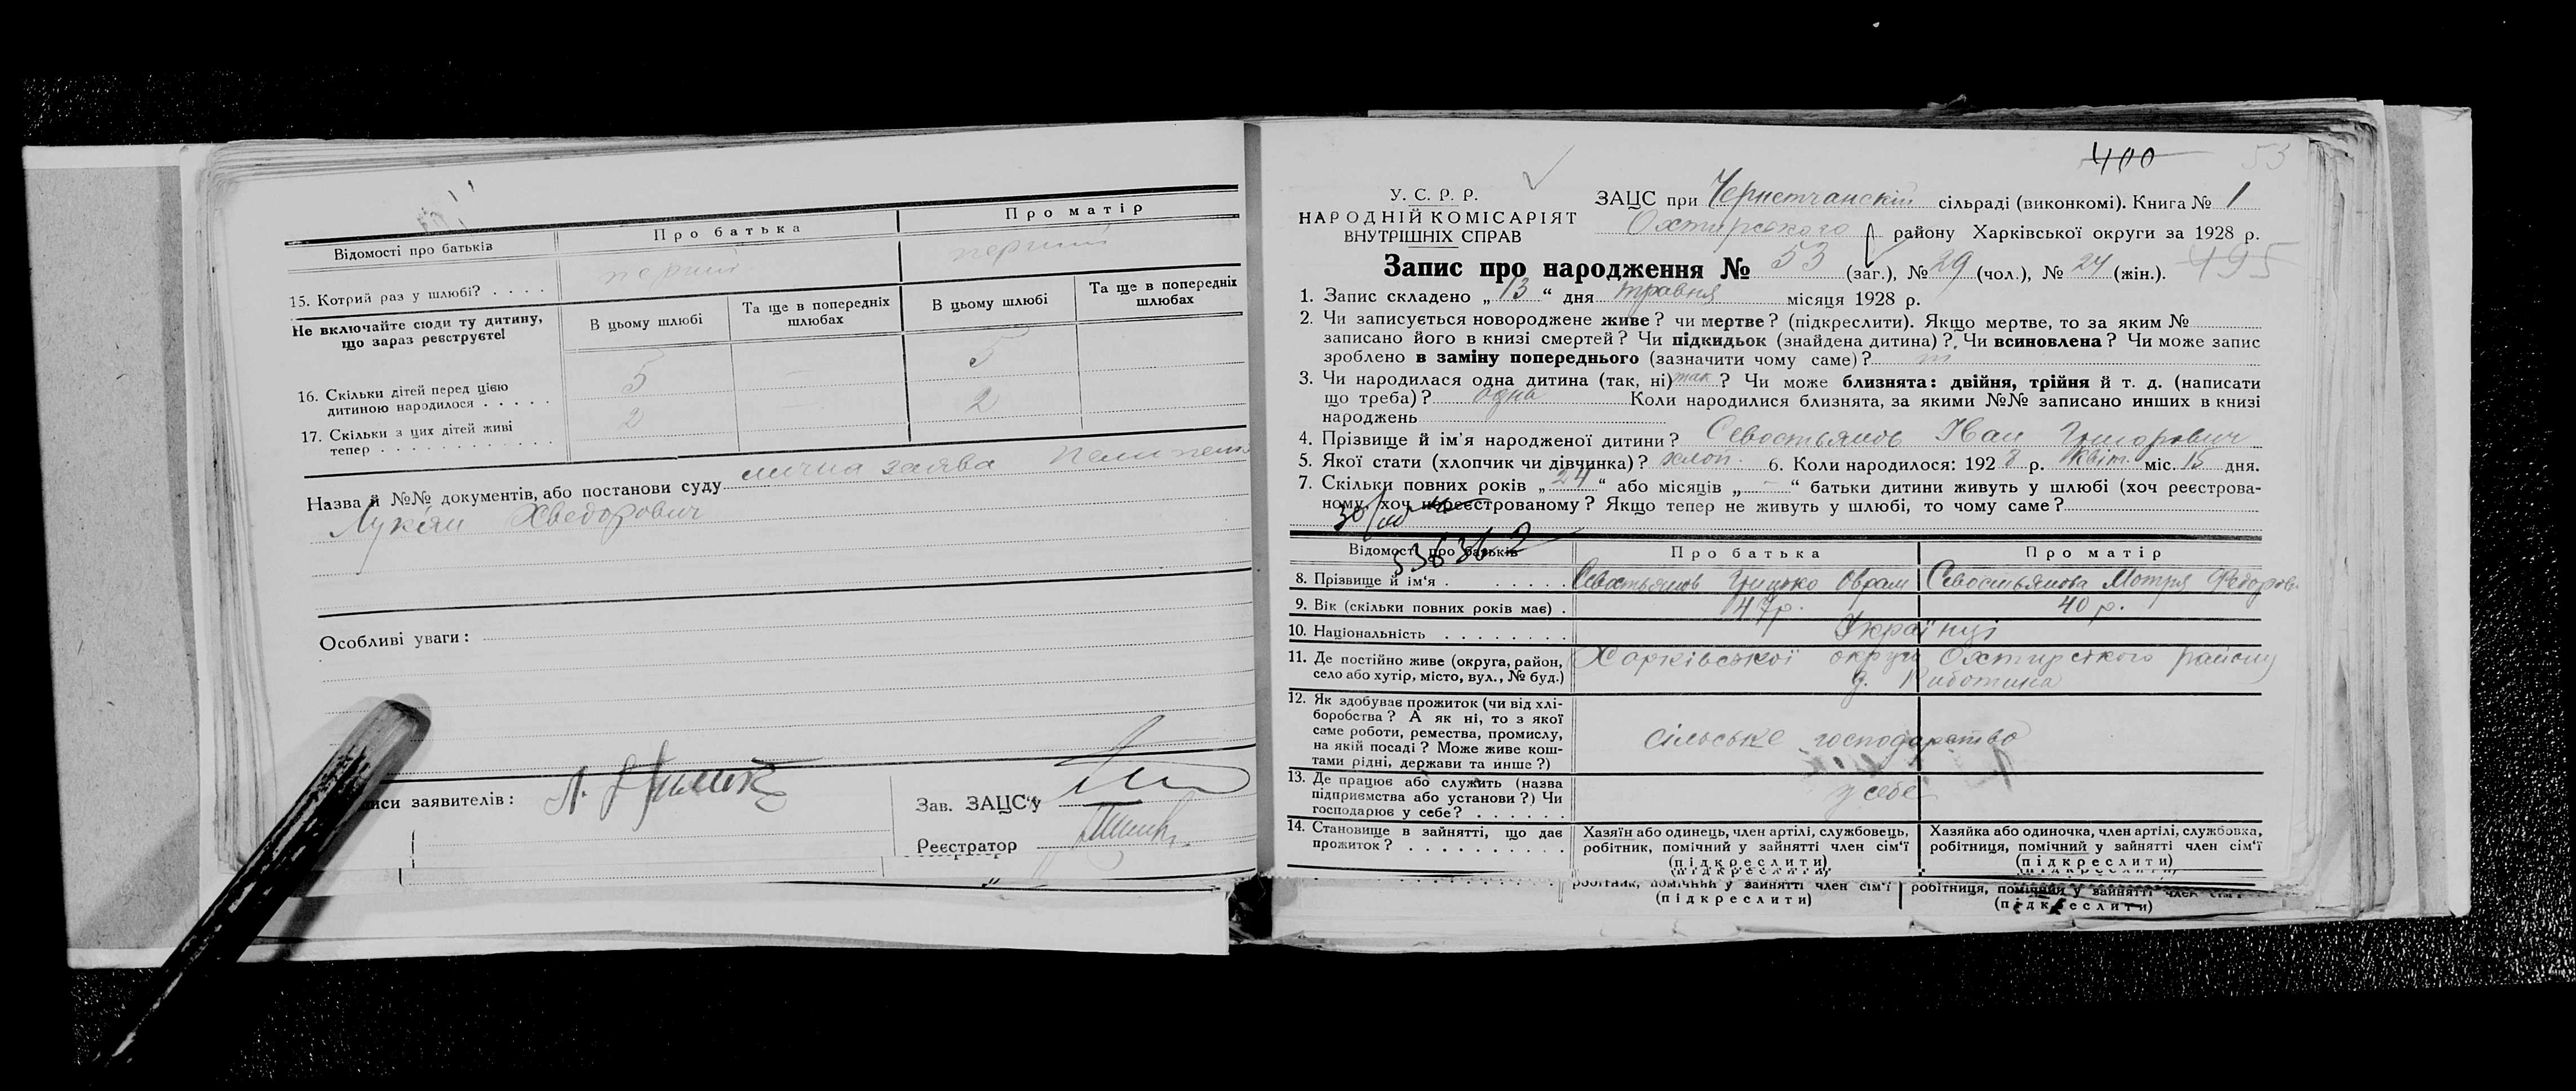 Відомості про батьків
Про батька
Про матір
15. Котрий раз у шлюбі? . . . .
перший
перший
Не включайте сюди ту дитину, що зараз реєструєте!
В цьому шлюбі
Та ще в попередніх шлюбах
В цьому шлюбі
Та ще в попередніх шлюбах
16. Скільки дітей перед цією дитиною народилося . . . . .
5
5
17. Скільки з цих дітей живі тепер . . . . . . . . . . . .
2
2
Назва й №№ документів, або постанови суду лична заява
Лукіян Хведорович
Особливі уваги:
заявителів:
Зав. ЗАЦС'у
Реєстратор
400
53
У. С. Р. Р.
НАРОДНІЙ КОМІСАРІЯТ
ВНУТРІШНІХ СПРАВ
ЗАЦС при сільраді (виконкомі). Книга № 1
Охтирського району Харківської округи за 1928 р.
495
Запис про народження № 53 (заг.), № 29 (чол.), № 24 (жін.).
1. Запис складено „ 13 “ дня травня місяця 1928 р.
2. Чи записується новороджене живе? чи мертве? (підкреслити). Якщо мертве, то за яким №
записано його в книзі смертей? Чи підкидьок (знайдена дитина)? Чи всиновлена? Чи може запис
зроблено в заміну попереднього (зазначити чому саме)?
3. Чи народилася одна дитина (так, ні) так ? Чи може близнята: двійня, трійня й т. д. (написати
що треба)? одна Коли народилися близнята, за якими №№ записано инших в книзі
народжень
4. Прізвище й ім'я народженої дитини? Севостьянов Іван Григорович
5. Якої стати (хлопчик чи дівчинка)? хлоп. 6. Коли народилося: 192 8 р. квіт. міс. 15 дня.
7. Скільки повних років „ 24 “ або місяців „ – “ батьки дитини живуть у шлюбі (хоч реєстрова-
ному, хоч нереєстрованому? Якщо тепер не живуть у шлюбі, то чому саме?
Відомості про батьків
Про батька
Про матір
8. Прізвище й ім'я . . . . . .
Севостьянов Грицько Оврам
Севостьянова Мотря Федоров
9. Вік (скільки повних років має) .
47 р.
40 р.
10. Національність . . . . . . . .
Українці
11. Де постійно живе (округа, район,
село або хутір, місто, вул., № буд.)
Харківської округи Охтирського району
12. Як здобуває прожиток (чи від хлі-
боробства? А як ні, то з якої
саме роботи, ремества, промислу,
на якій посаді? Може живе кош-
тами рідні, держави та инше?)
сільське господарство
13. Де працює або служить (назва
підприємства або установи?) Чи
господарює у себе? . . . . . .
у себе
14. Становище в зайнятті, що дає
прожиток? . . . . . . . . . .
Хазяїн або одинець, член артілі, службовець,
робітник, помічний у зайнятті член сім'ї
(підкреслити)
Хазяйка або одиночка, член артілі, службовка,
робітниця, помічний у зайнятті член сім'ї
(підкреслити)
робітник, помічний у зайнятті член сім'ї
(підкреслити)
робітниця, помічний у зайнятті член сім'ї
(підкреслити)